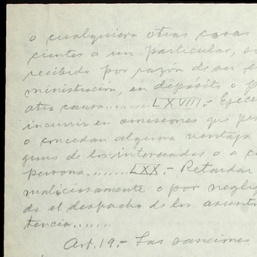 o cualquiera otras cosas
cientes a un particular, si
recibido por razón de su
ministracion, en depósito o p
otra causa....... LXVIII.- Ejecu
incurrir en omisiones que pe
o concedan alguna ventaja
guno de los interesados o a c
persona........ LXX.- Retardar
maliciosamente o por neglig
do el despacho de los asunt
tencia.......
Art. 19.- Las sanciones